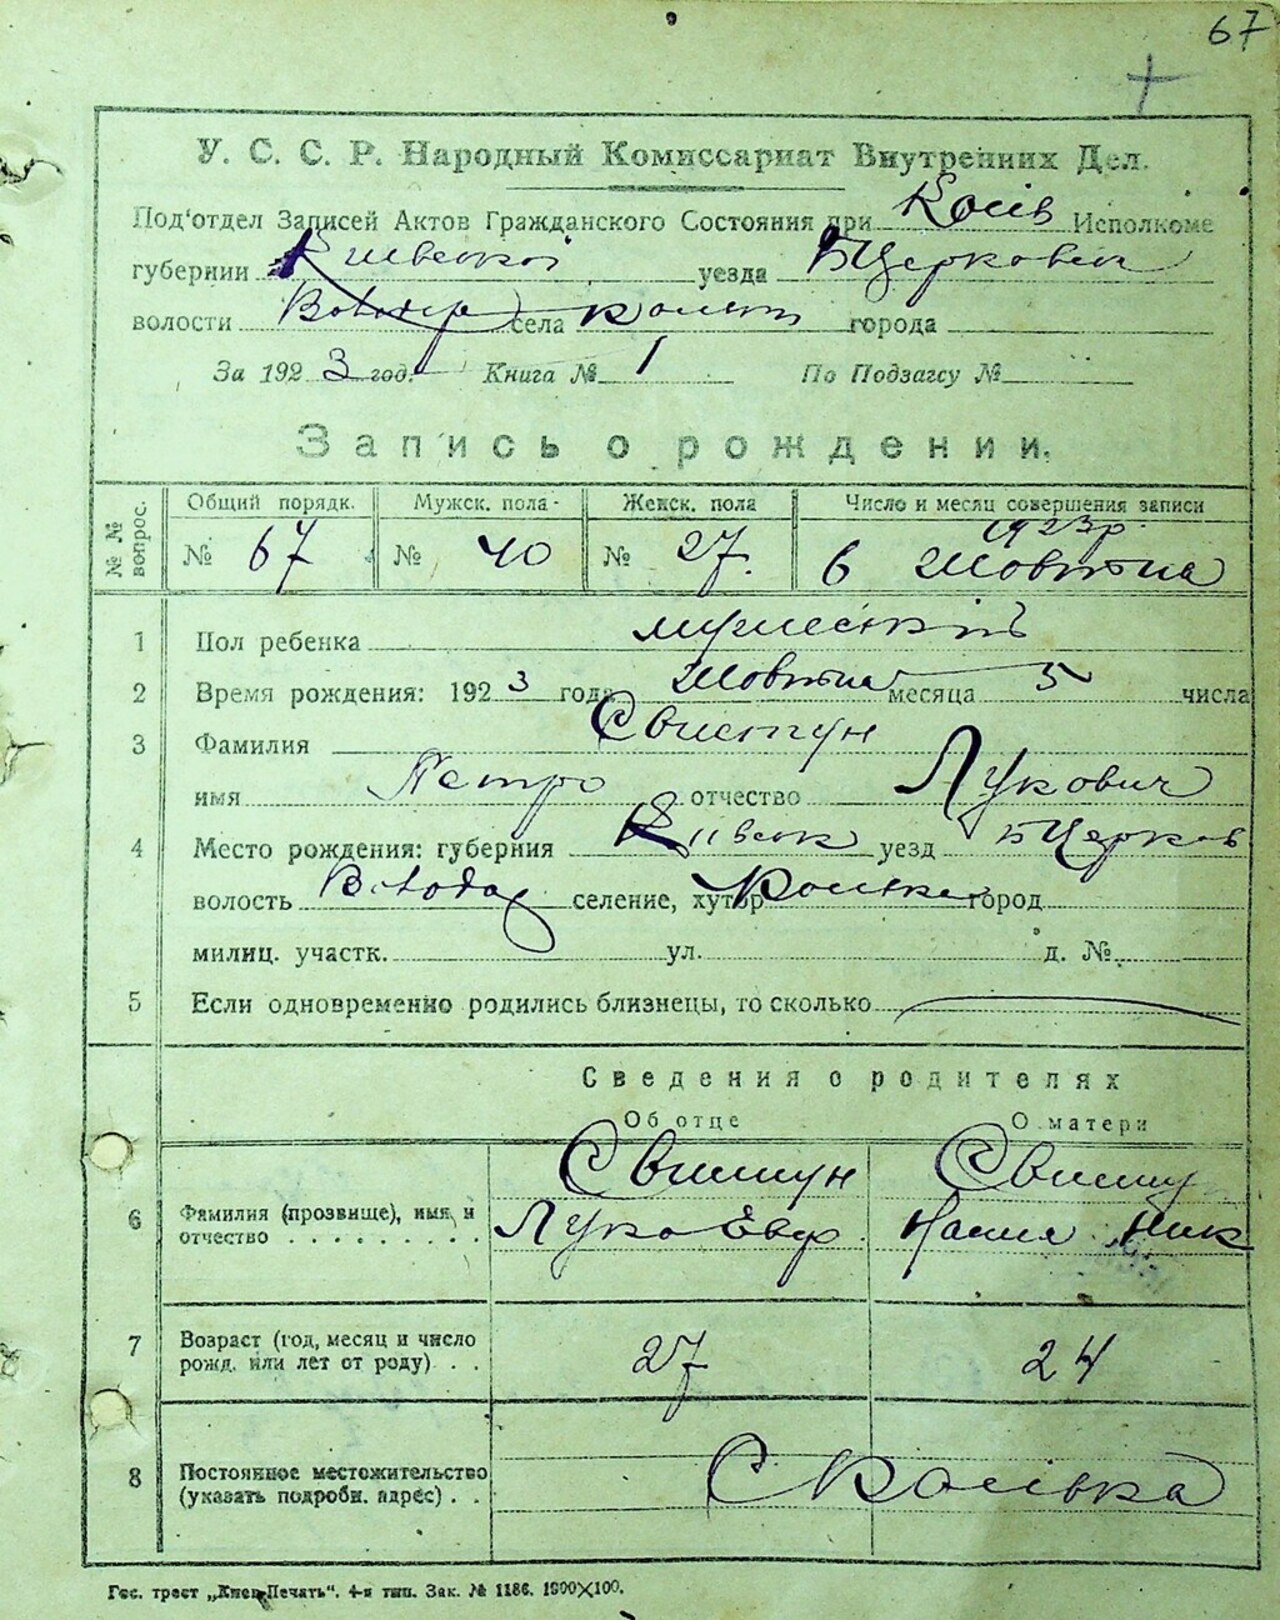 67
У. С. С. Р. Народный Комиссариат Внутренних Дел.
Под'отдел Записей Актов Гражданского Состояния при Исполкоме
губернии Киевской уезда БЦерковск
волости Володар села города
За 1923 год. Книга № 1 По Подзагсу №
Запись о рождении.
№ № вопрос. Общий порядк. Мужск. пола Женск. пола Число и месяц совершения записи
№ 67 № 40 № 27. 6 Жовтня 1923р.
1 Пол ребенка мужеский
2 Время рождения: 1923 года Жовтня месяца 5 числа
3 Фамилия Свистун
имя Петро отчество Лукович
4 Место рождения: губерния Київськ уезд БЦерков
волость Володар селение, хутор город
милиц. участк. ул. д. №
5 Если одновременно родились близнецы, то сколько
Сведения о родителях
Об отце О матери
6 Фамилия (прозвище), имя и отчество Свистун Свисту
Лука Евф. Настя Ник
7 Возраст (год, месяц и число рожд. или лет от роду) 27 24
8 Постоянное местожительство (указать подробн. адрес)
Гос. трест „Киев-Печать“. 4-я тип. Зак. № 1186. 1900×100.